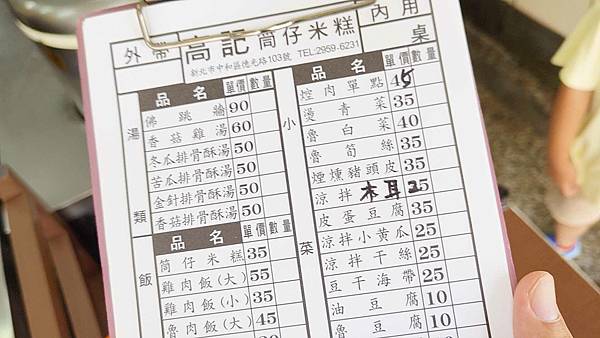 外帶 高記筒仔米糕 內用
新北市中和區德光路103號 TEL:2959-6231 桌
湯類
品名 單價 數量
佛跳牆 90
香菇雞湯 60
冬瓜排骨酥湯 50
苦瓜排骨酥湯 50
金針排骨酥湯 50
香菇排骨酥湯 50
飯
品名 單價 數量
筒仔米糕 35
雞肉飯(大) 55
雞肉飯(小) 35
魯肉飯(大) 45
小菜
品名 單價 數量
焢肉單點 45
燙青菜 35
魯白菜 40
魯筍絲 35
煙燻豬頭皮 35
涼拌木耳 25
皮蛋豆腐 35
涼拌小黃瓜 25
涼拌干絲 25
豆干海帶 25
油豆腐 10
魯豆腐 10